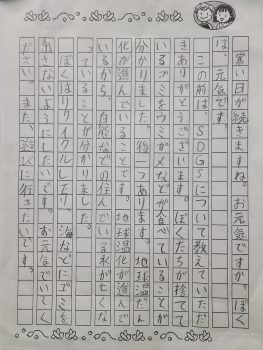 寒い日が続きますね。お元気ですか。ぼく
は、元気です。
この前は、SDGSについて教えていただ
きありがとうございます。ぼくたちが捨てて
いるゴミをウミガメなどが食べていることが
分かりました。後一つあります。地球温だん
化が進んでいることです。地球温化が進んで
いるから、自然などの住んでいる氷が亡くな
っていることが分かりました。
ぼくはリサイクルしたり海などにゴミを
出さないようにしたいです。お元気でいてく
ださい。また、遊びに行きたいです。